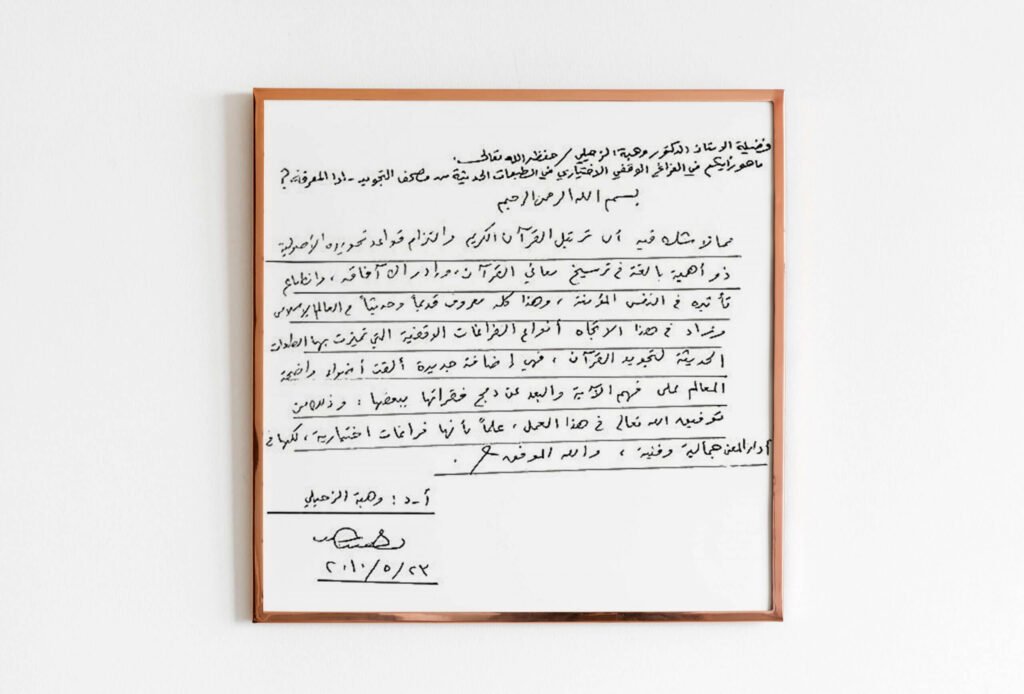 فضيلة الأستاذ الدكتور وهبة الزحيلي / حفظه الله تعالى.
ما هو رأيكم في الفراغ الوقفي الاختياري في الطبعات الحديثة من مصحف التجويد - دار المعرفة ؟
بسم الله الرحمن الرحيم
مما لا شك فيه أن ترتيل القرآن الكريم والتزام قواعد تجويده الأصولية
ذو أهمية بالغة في ترسيخ معاني القرآن، وإدراك آفاقه، وانطباع
تأثيره في النفس المؤمنة، وهذا كله معروف قديماً وحديثاً في العالم الإسلامي
ويزاد في هذا الاتجاه أنواع الفراغات الوقفية التي تميزت بها الطبعات
الحديثة لتجويد القرآن، فهي إضافة جديدة ألقت أضواء واضحة
المعالم على فهم الآية والبعد عن دمج فقراتها ببعضها، وذلك من
توفيق الله تعالى في هذا العمل، علماً بأنها فراغات اختيارية، لكنها في
أداء المعنى جمالية وفنية، والله الموفق.
أ.د: وهبة الزحيلي
٢٠١٠/٥/٢٣